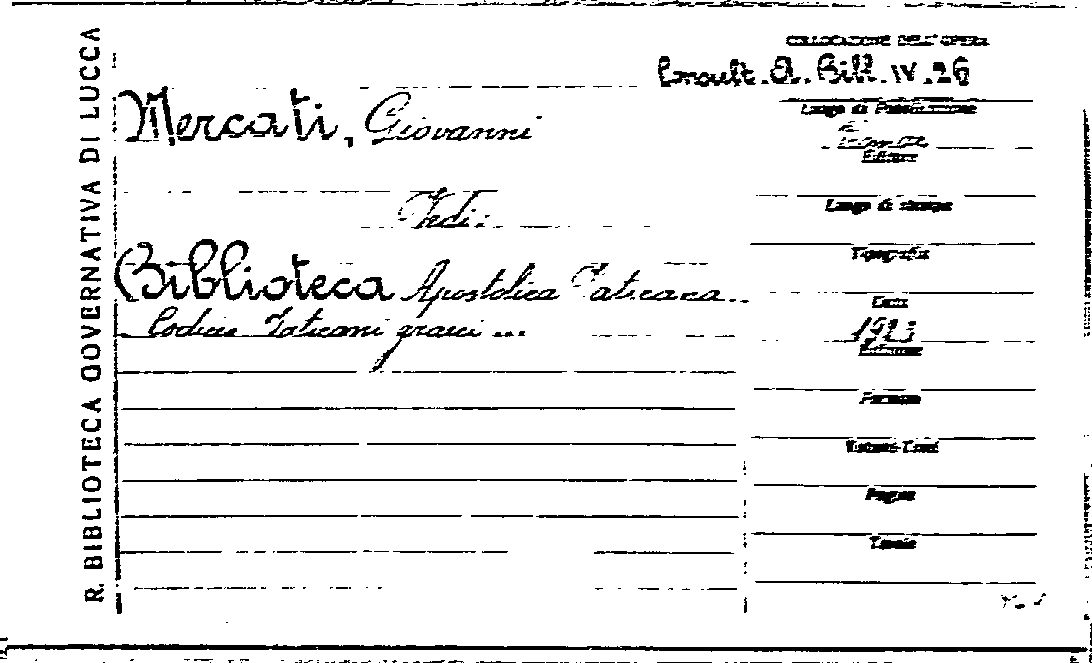 R. BIBLIOTECA GOVERNATIVA DI LUCCA
COLLOCAZIONE DELL'OPERA
Consult. A. Bibl. IV. 26
Mercati, Giovanni
Vedi:
Biblioteca Apostolica Vaticana..
Codices Vaticani graeci ...
Luogo di Pubblicazione
Roma
Editore
Luogo di stampa
Tipografia
Data
1923
Edizione
Formato
Volume-Tomi
Pagine
Tavole